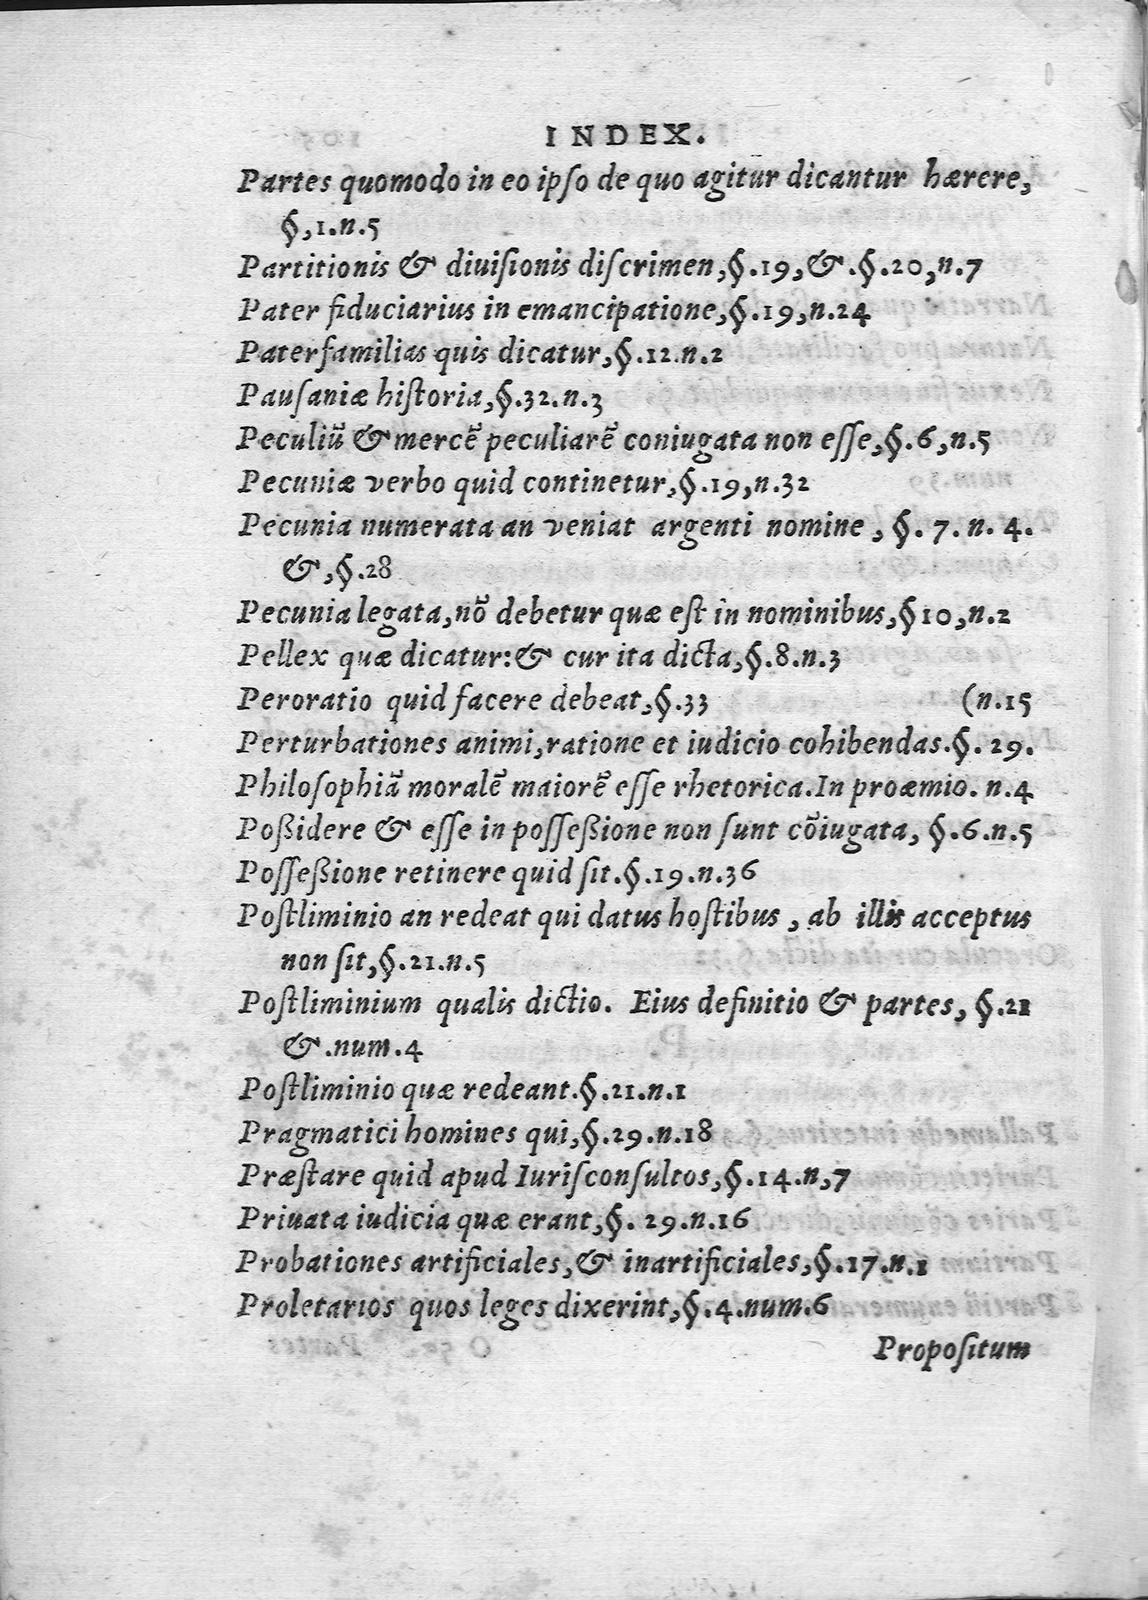 INDEX.
Partes quomodo in eo ipſo de quo agitur dicantur hærere,
§,1.n.5
Partitionis & diuiſionis diſcrimen,§.19,&.§.20,n.7
Pater fiduciarius in emancipatione,§.19,n.24
Paterfamilias quis dicatur,§.12.n.2
Pauſaniæ hiſtoria,§.32.n.3
Peculiū & mercē peculiarē coniugata non eſſe,§.6,n.5
Pecuniæ verbo quid continetur,§.19,n.32
Pecunia numerata an veniat argenti nomine , §. 7. n. 4.
&,§.28
Pecunia legata,nō debetur quæ eſt in nominibus,§10,n.2
Pellex quæ dicatur:& cur ita dicta,§.8.n.3
Peroratio quid facere debeat,§.33 (n.15
Perturbationes animi,ratione et iudicio cohibendas.§. 29.
Philoſophiā moralē maiorē eſſe rhetorica.In proæmio. n.4
Poßidere & eſſe in poſſeßione non ſunt cōiugata, §.6.n.5
Poſſeßione retinere quid ſit.§.19.n.36
Poſtliminio an redeat qui datus hoſtibus , ab illis acceptus
non ſit,§.21.n.5
Poſtliminium qualis dictio. Eius definitio & partes, §.21
&.num.4
Poſtliminio quæ redeant.§.21.n.1
Pragmatici homines qui,§.29.n.18
Præſtare quid apud Iuriſconſultos,§.14.n,7
Priuata iudicia quæ erant,§. 29.n.16
Probationes artificiales,& inartificiales,§.17.n.1
Proletarios quos leges dixerint,§.4.num.6
Propoſitum